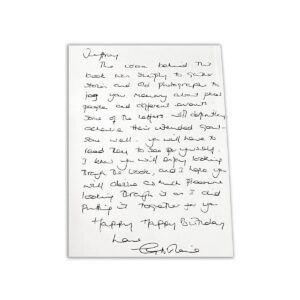 Jeffrey
The idea behind this
book was simply to gather
stories and old photographs to
jog your memory about past
people and different events
Some of the letters will definitely
achieve their intended goal -
some well - you will have to
read them to see for yourself.
I know you will enjoy looking
through the book, and I hope you
will derive as much pleasure
looking through it as I did
putting it together for you
Happy Happy Birthday
Love